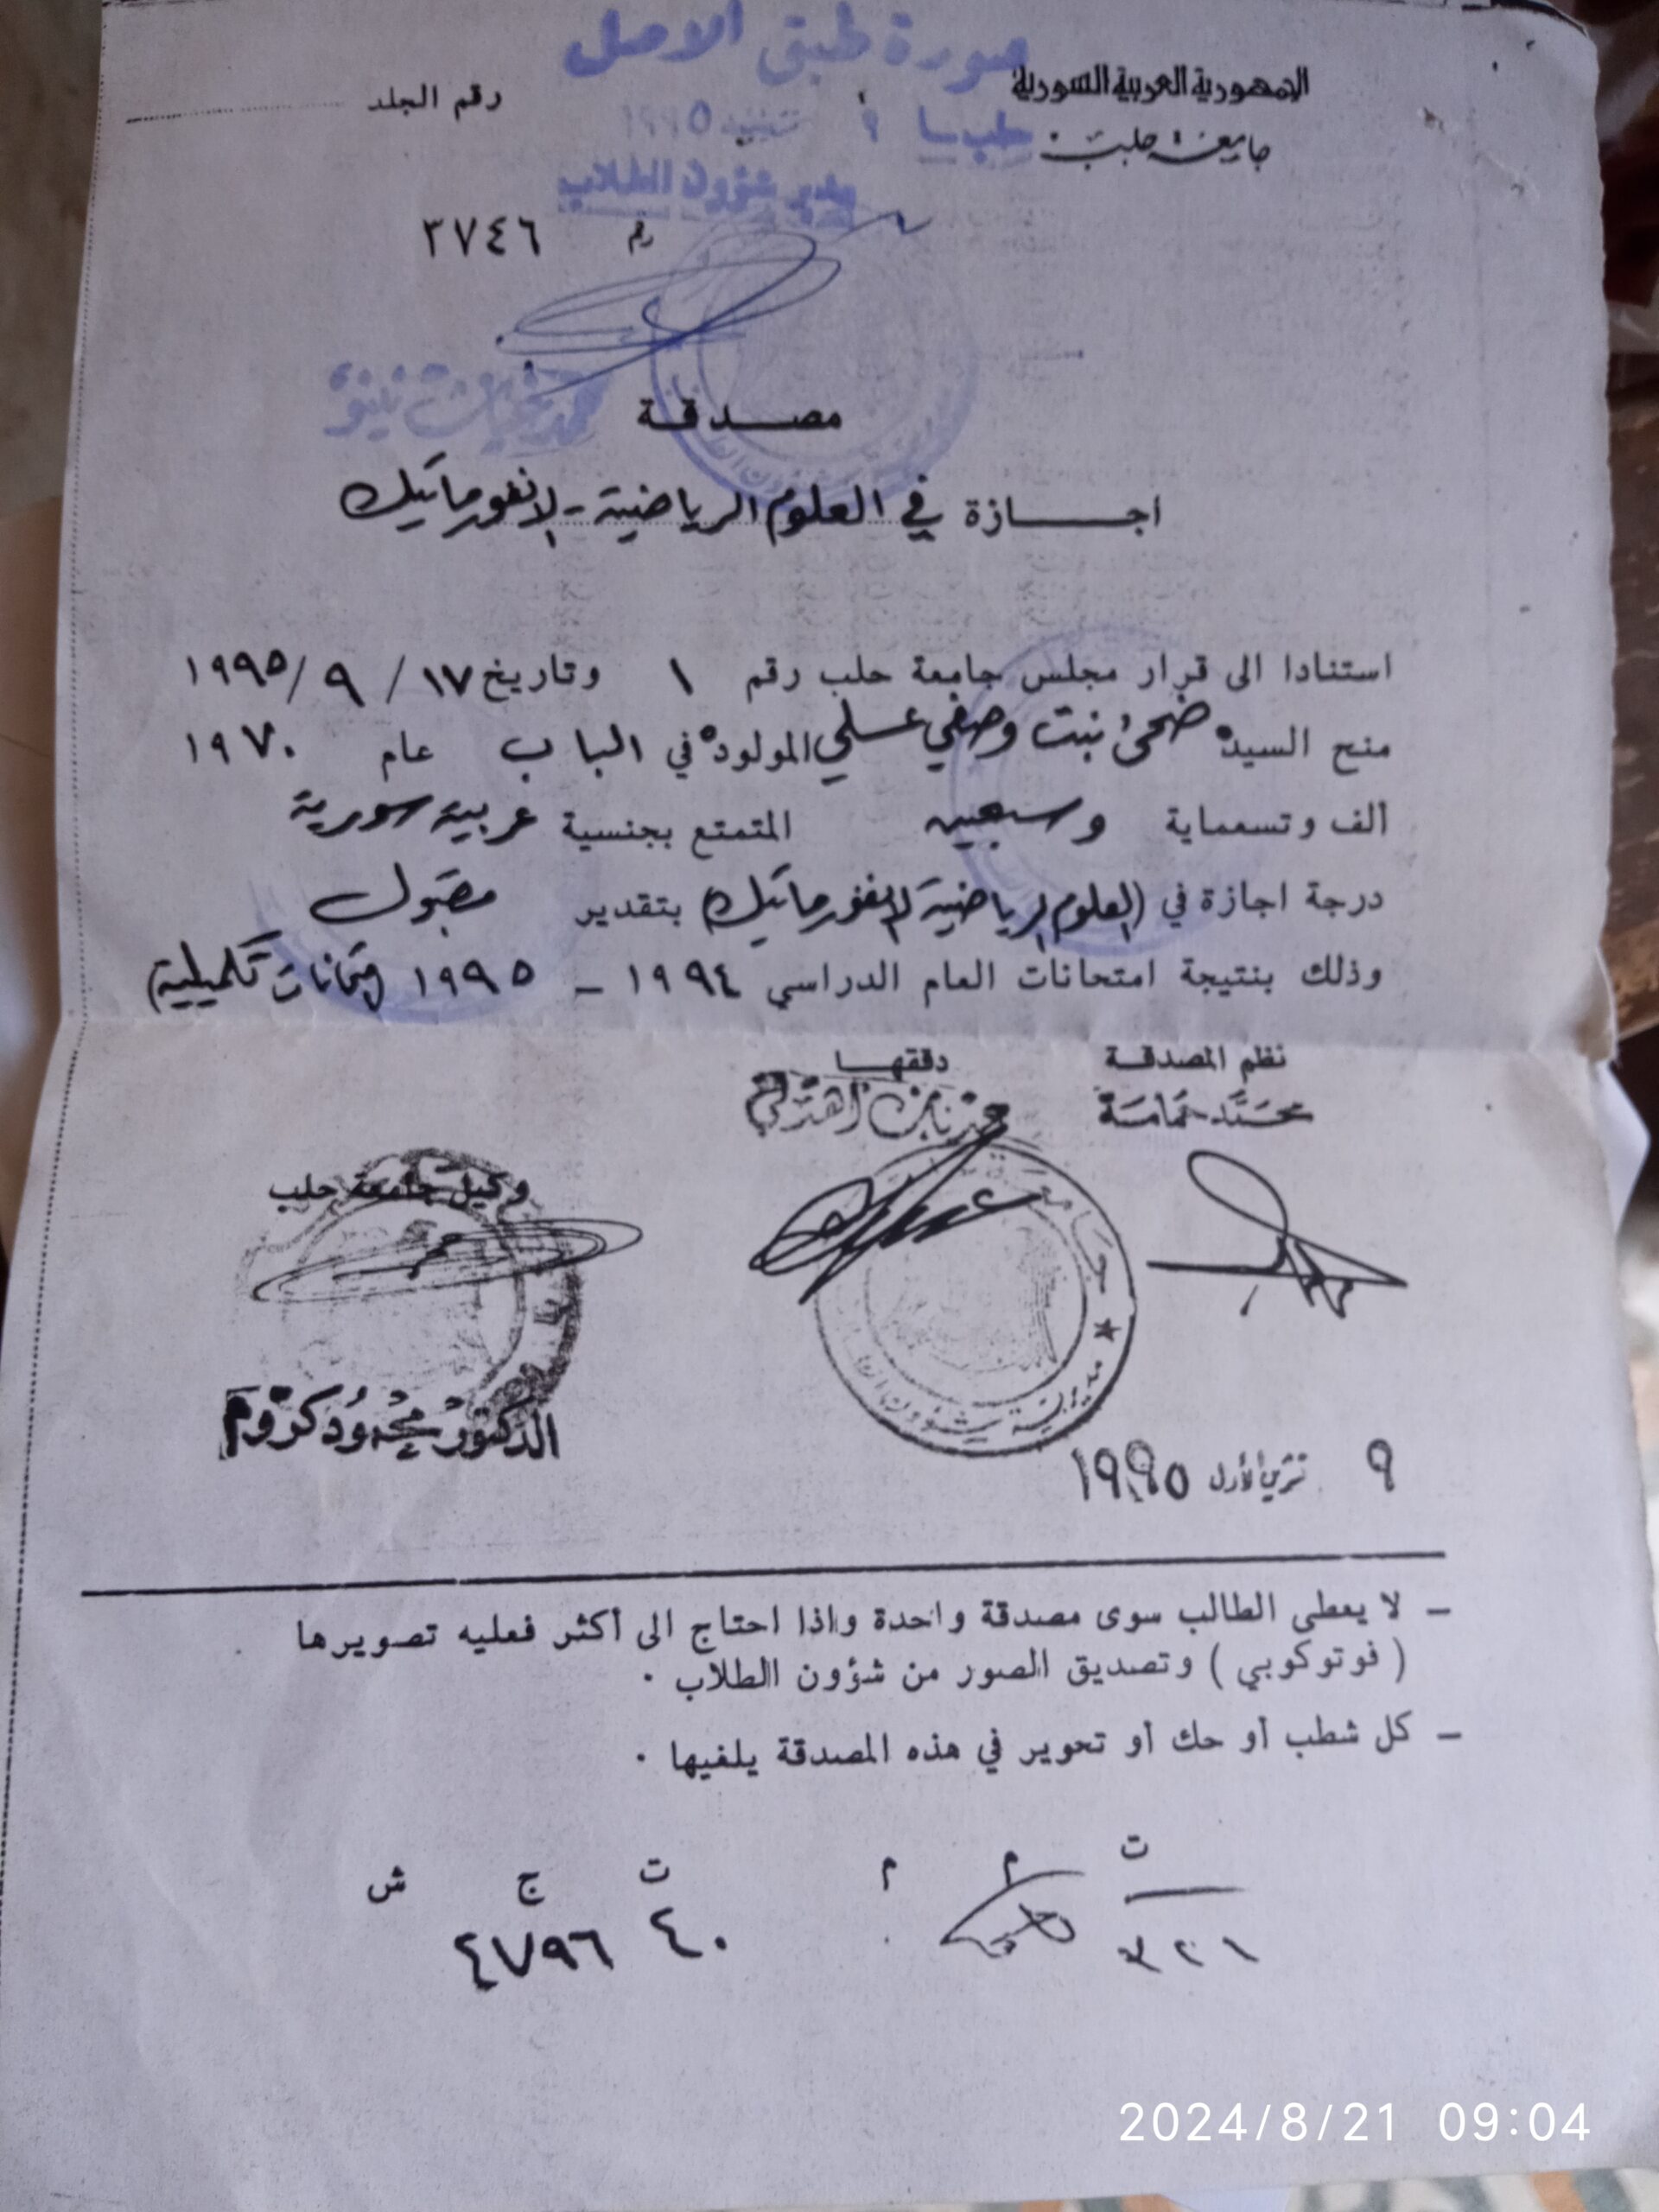 صورة طبق الاصل
الجمهورية العربية السورية
رقم الجلد
جامعة حلب
حلب في ٩ ١٩٩٥
مدير شؤون الطلاب
رقم ٣٧٤٦
مصدقة
اجازة في العلوم الرياضية - الانفورماتيك
استنادا الى قرار مجلس جامعة حلب رقم ١ وتاريخ ١٧ / ٩ / ١٩٩٥
منح السيدة ضحى بنت وصفي عسلي المولودة في الباب عام ١٩٧٠
ألف وتسعماية وسبعين المتمتع بجنسية عربية سورية
درجة اجازة في (العلوم الرياضية الانفورماتيك) بتقدير مقبول
وذلك بنتيجة امتحانات العام الدراسي ١٩٩٤ - ١٩٩٥ (امتحانات تكميلية)
نظم المصدقة
دققها
وكيل جامعة حلب
جامعة
مديرية شؤون
الدكتور محمود كروم
٩ تشرين الأول ١٩٩٥
- لا يعطى الطالب سوى مصدقة واحدة واذا احتاج الى أكثر فعليه تصويرها
( فوتوكوبي ) وتصديق الصور من شؤون الطلاب .
- كل شطب أو حك أو تحوير في هذه المصدقة يلغيها .
ت م م ت ج ش
٤٠ ٤٧٩٦
2024/8/21 09:04